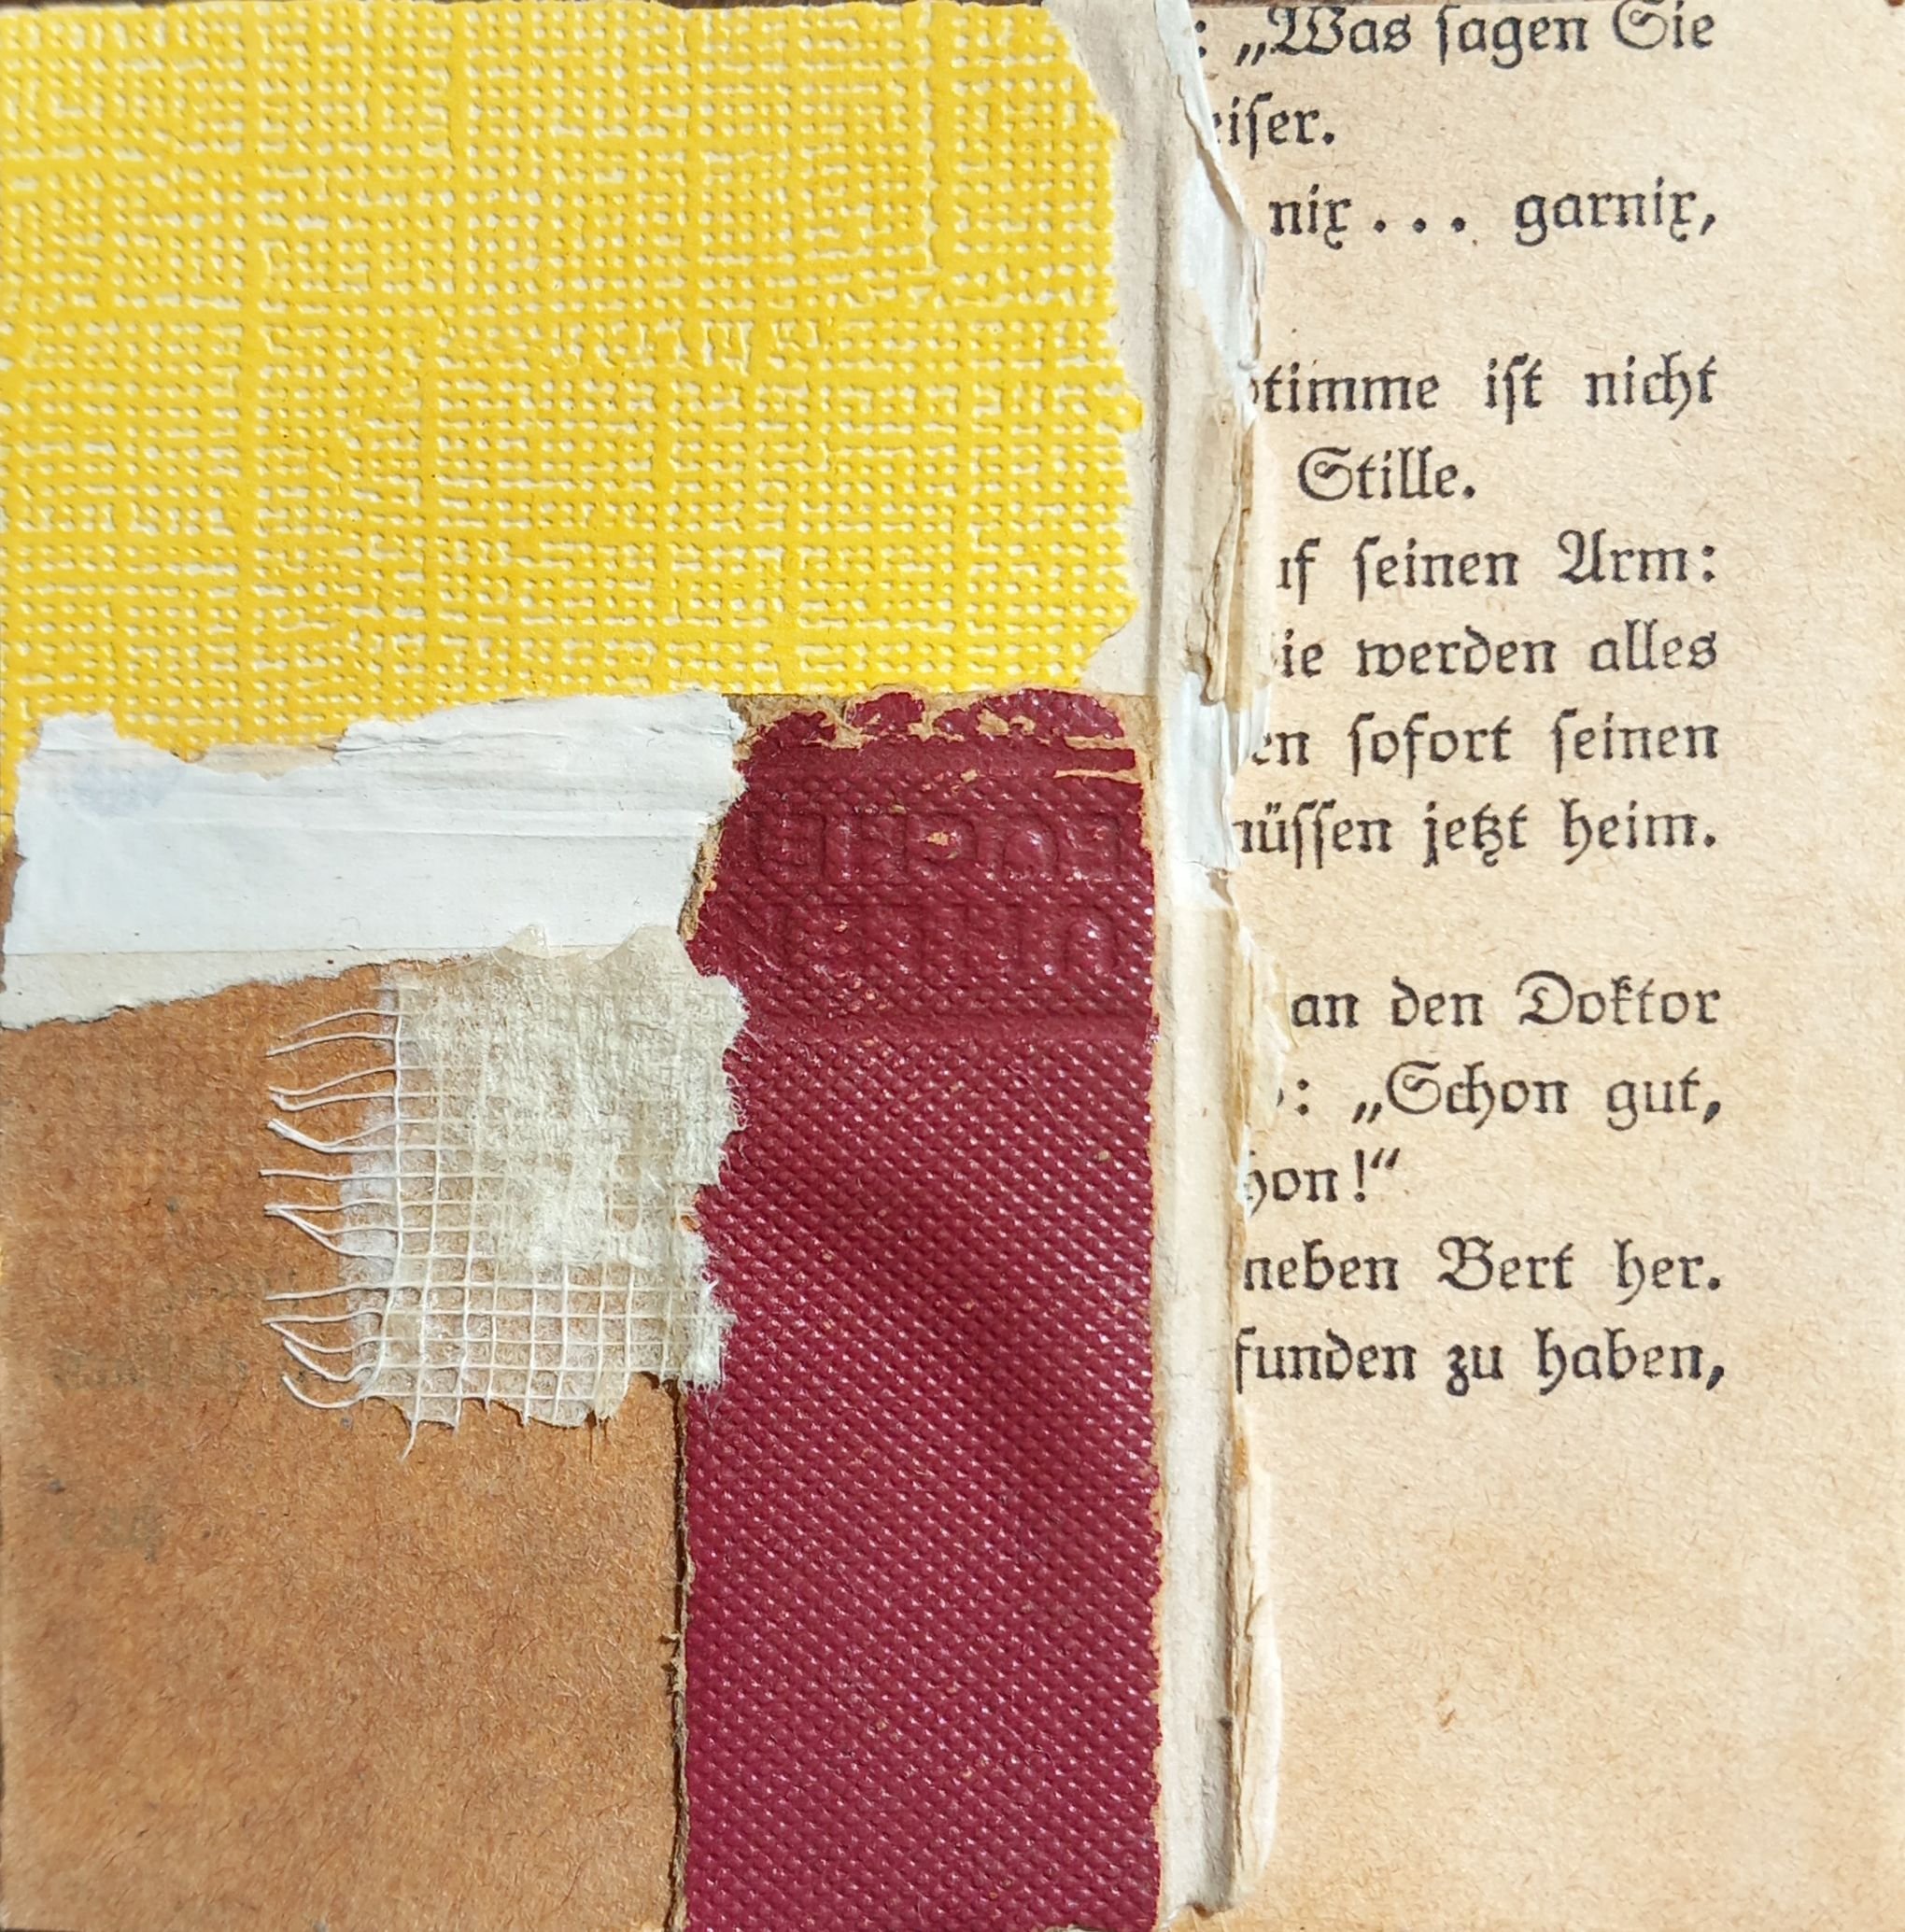 : „Was ſagen Sie
eiſer.
nix... garnix,
timme iſt nicht
Stille.
uf ſeinen Arm:
ie werden alles
en ſofort ſeinen
müſſen jetzt heim.
an den Doktor
: „Schon gut,
hon!“
neben Bert her.
funden zu haben,